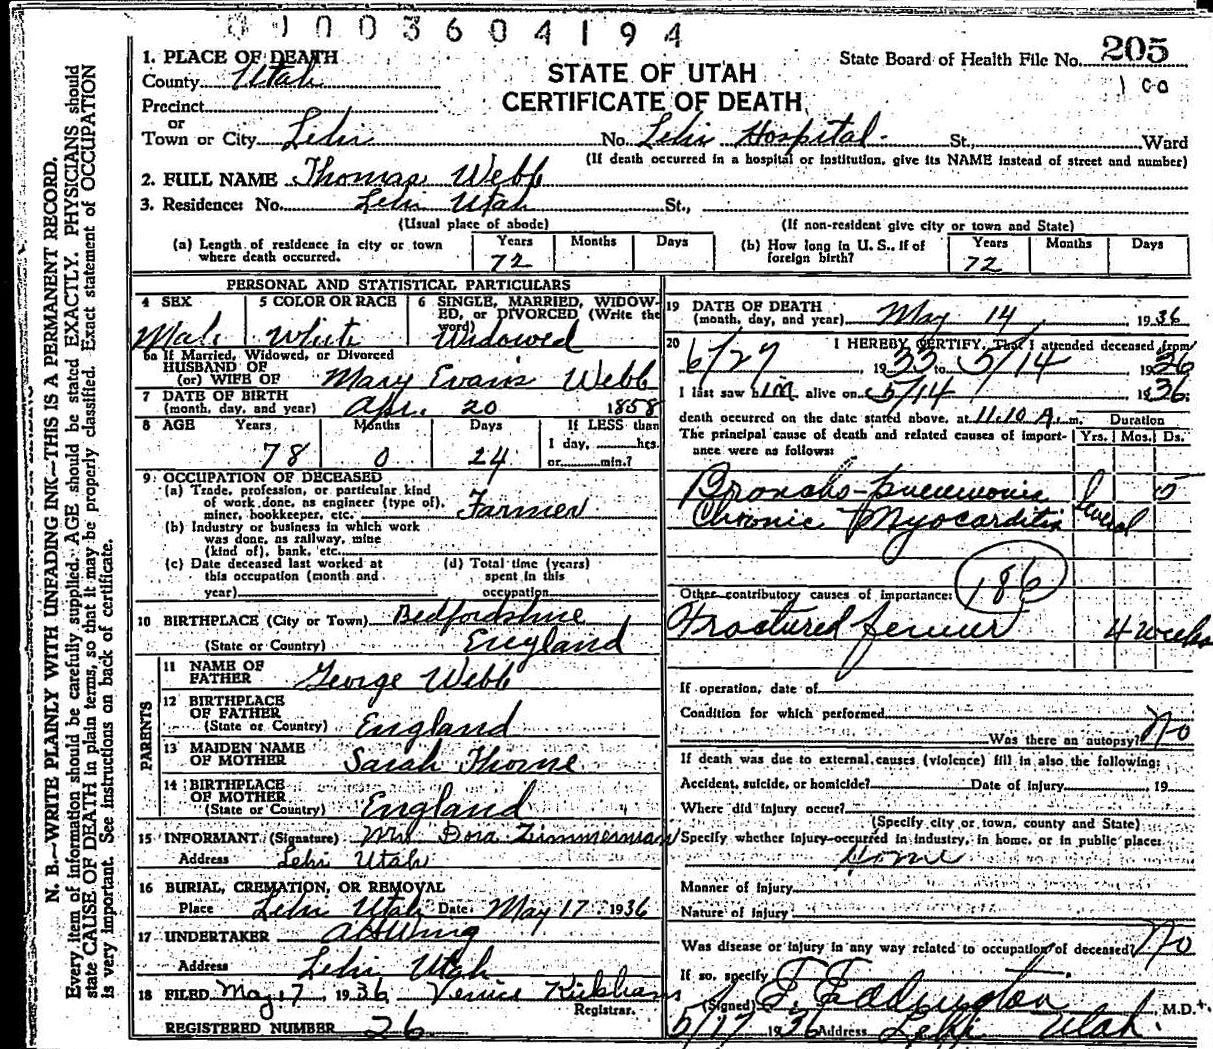 01003604194
State Board of Health File No. 205
100
1. PLACE OF DEATH
County Utah
STATE OF UTAH
CERTIFICATE OF DEATH
Precinct
or
Town or City Lehi No. Lehi Hospital St., Ward
(If death occurred in a hospital or institution, give its NAME instead of street and number)
2. FULL NAME Thomas Webb
3. Residence: No. Lehi Utah St.,
(Usual place of abode) (If non-resident give city or town and State)
(a) Length of residence in city or town where death occurred. Years 72 Months Days (b) How long in U. S., if of foreign birth? Years 72 Months Days
PERSONAL AND STATISTICAL PARTICULARS
4 SEX Male 5 COLOR OR RACE White 6 SINGLE, MARRIED, WIDOWED, or DIVORCED (Write the word) Widowed
6a If Married, Widowed, or Divorced
HUSBAND OF
(or) WIFE OF Mary Evans Webb
7 DATE OF BIRTH
(month, day, and year) Apr. 20 1858
8 AGE Years 78 Months 0 Days 24 If LESS than
1 day, hrs.
or min.?
9 OCCUPATION OF DECEASED
(a) Trade, profession, or particular kind
of work done, as engineer (type of),
miner, bookkeeper, etc. Farmer
(b) Industry or business in which work
was done, as railway, mine
(kind of), bank, etc.
(c) Date deceased last worked at
this occupation (month and
year)
(d) Total time (years)
spent in this
occupation
10 BIRTHPLACE (City or Town) Bedfordshire
(State or Country) England
PARENTS
11 NAME OF
FATHER George Webb
12 BIRTHPLACE
OF FATHER
(State or Country) England
13 MAIDEN NAME
OF MOTHER Sarah Thorne
14 BIRTHPLACE
OF MOTHER
(State or Country) England
15 INFORMANT (Signature) Mrs Dora Zimmerman
Address Lehi Utah
16 BURIAL, CREMATION, OR REMOVAL
Place Lehi Utah Date May 17 1936
17 UNDERTAKER
Address Lehi Utah
18 FILED May 17, 1936 Venice Kirkham
Registrar.
REGISTERED NUMBER 26
19 DATE OF DEATH
(month, day, and year) May 14, 1936
20 I HEREBY CERTIFY, That I attended deceased from
6/27, 1933 to 5/14 1936
I last saw him alive on 5/14, 1936.
death occurred on the date stated above, at 11.10 A.m. Duration
The principal cause of death and related causes of importance were as follows: Yrs. Mos. Ds.
Broncho-pneumonia 5
Chronic Myocarditis Several
186
Other contributory causes of importance:
Fractured femur 4 weeks
If operation, date of
Condition for which performed
Was there an autopsy? No
If death was due to external causes (violence) fill in also the following:
Accident, suicide, or homicide? Date of injury 19
Where did injury occur?
(Specify city or town, county and State)
Specify whether injury occurred in industry, in home, or in public place:
Home
Manner of injury
Nature of injury
Was disease or injury in any way related to occupation of deceased? No
If so, specify
(Signed) E. Eddington, M.D.
5/17 1936 Address Lehi Utah.
N. B.—WRITE PLAINLY WITH UNFADING INK—THIS IS A PERMANENT RECORD.
Every item of information should be carefully supplied. AGE should be stated EXACTLY. PHYSICIANS should
state CAUSE OF DEATH in plain terms, so that it may be properly classified. Exact statement of OCCUPATION
is very important. See instructions on back of certificate.